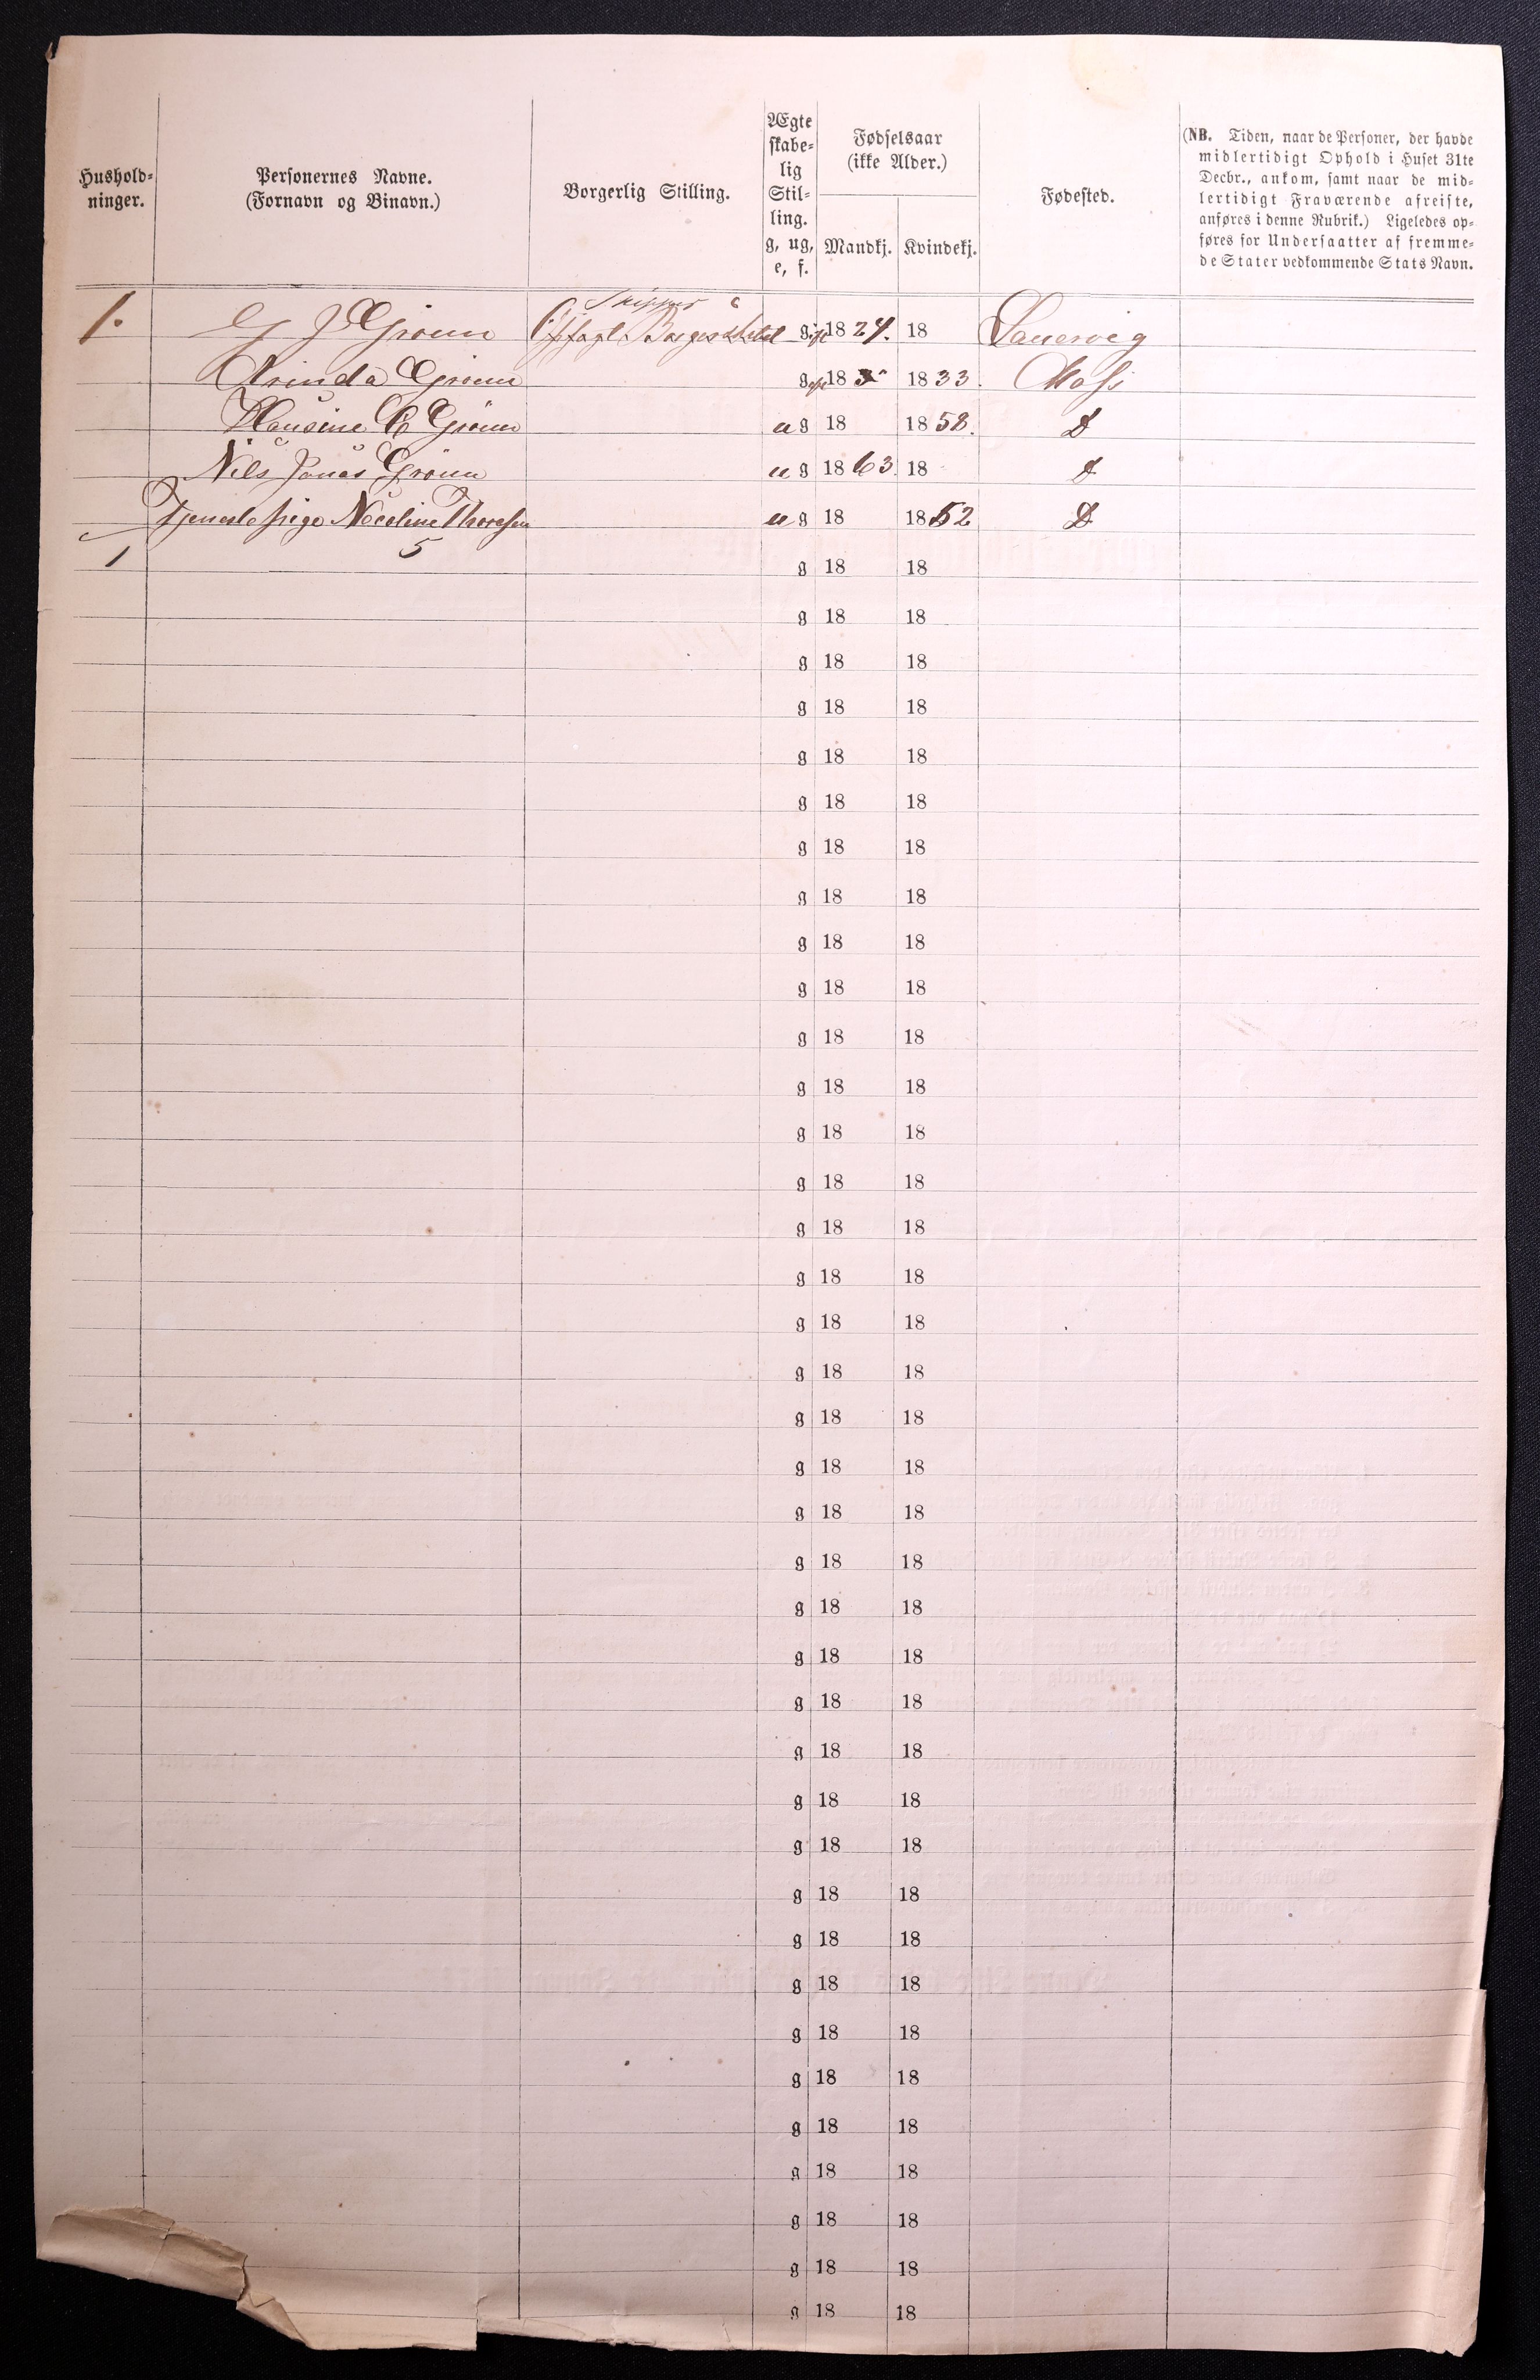 Hushold-
ninger.
Personernes Navne.
(Fornavn og Binavn.)
Borgerlig Stilling.
Ægte
skabe-
lig
Stil-
ling.
g, ug,
e, f.
Fødselsaar
(ikke Alder.)
Mandkj.
Kvindekj.
Fødested.
(NB. Tiden, naar de Personer, der havde
midlertidigt Ophold i Huset 31te
Decbr., ankom, samt naar de mid-
lertidigt Fraværende afreiste,
anføres i denne Rubrik.) Ligeledes op-
føres for Undersaatter af fremme-
de Stater vedkommende Stats Navn.
Skipper
1. J Grönn gift 1824. 18 Laurvig
Arinda Grönn gift 18 1833. Moss
Hansine Grönn u g 18 1858. D
Nils Jonas Grönn u g 1863. 18 D
Tjenestepige Nicoline Thoresen u g 18 1852 D
1 5 g 18 18
g 18 18
g 18 18
g 18 18
g 18 18
g 18 18
g 18 18
g 18 18
g 18 18
g 18 18
g 18 18
g 18 18
g 18 18
g 18 18
g 18 18
g 18 18
g 18 18
g 18 18
g 18 18
g 18 18
g 18 18
g 18 18
g 18 18
g 18 18
g 18 18
g 18 18
g 18 18
g 18 18
g 18 18
g 18 18
g 18 18
g 18 18
g 18 18
g 18 18
g 18 18
g 18 18
g 18 18
g 18 18